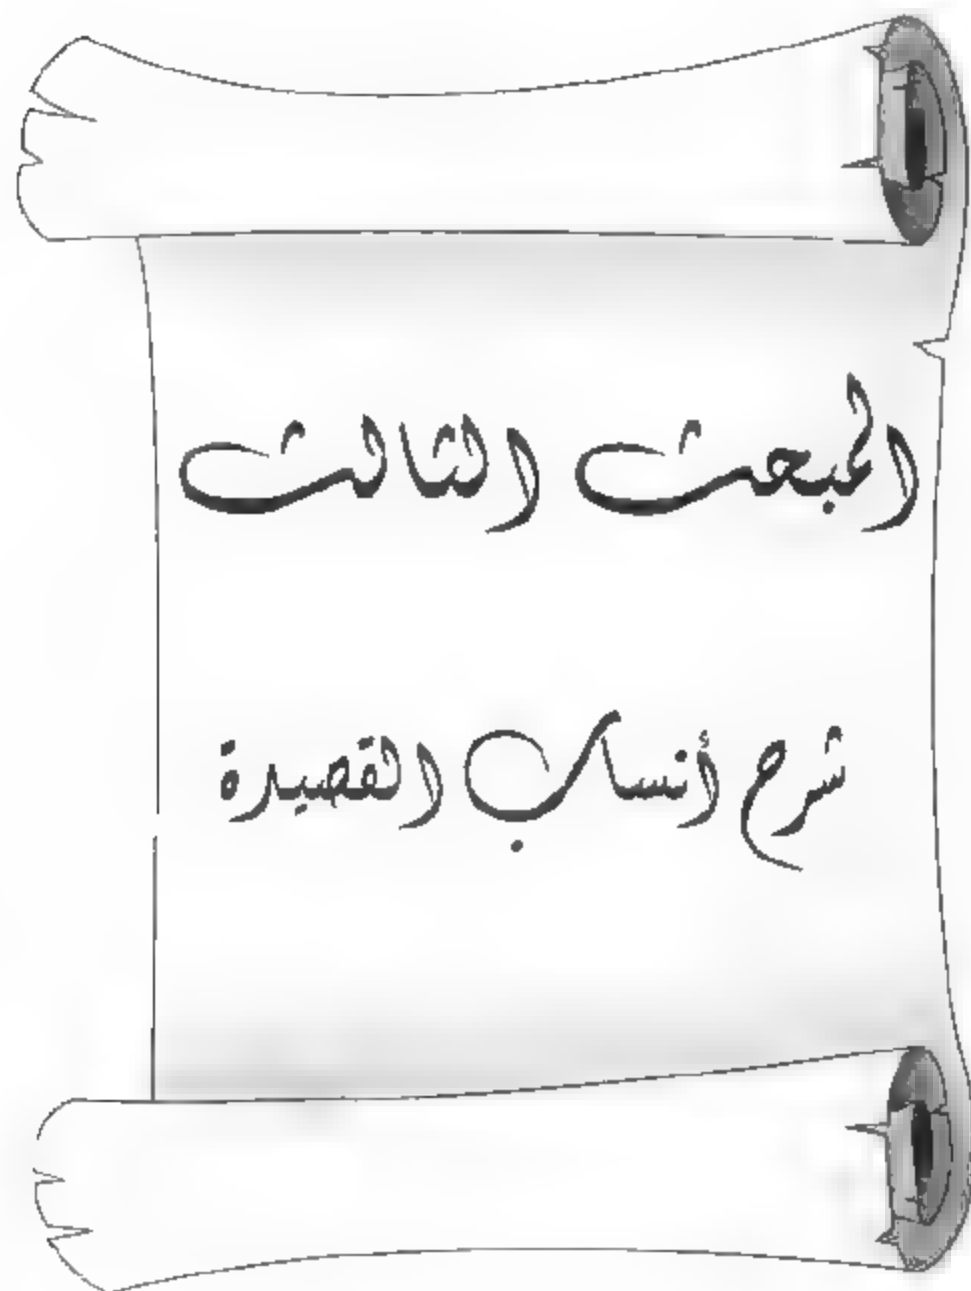 المبحث الثالث
شرح أنساب القصيدة